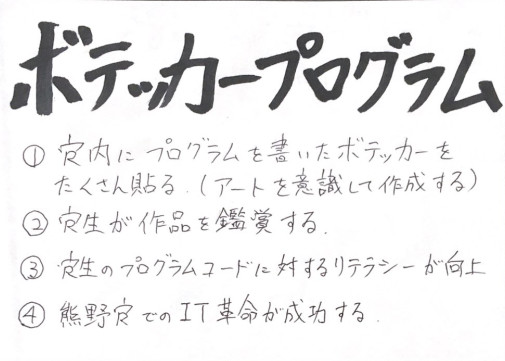 ボテッカープログラム
① 穴内にプログラムを書いたボテッカーを
たくさん貼る.(アートを意識して作成する)
② 穴生が作品を鑑賞する.
③ 穴生のプログラムコードに対するリテラシーが向上
④ 熊野穴でのIT革命が成功する.